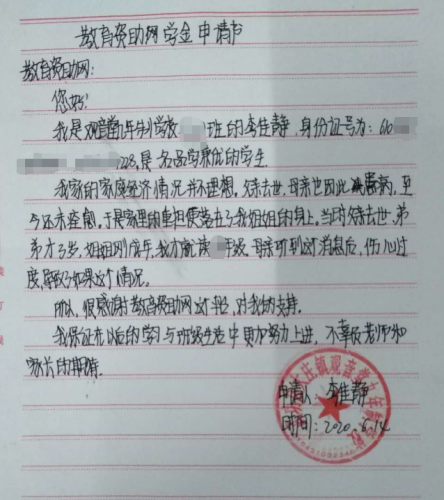 教育资助网学金申请书
教育资助网：
您好！
我是观音堂九年制学校 班的李佳静，身份证号为：610
228，是名品学兼优的学生
我家的家庭经济情况并不理想。父亲去世，母亲也因此患病，至
今还未痊愈。于是家里的重担便落在了我姐姐的身上。当时父亲去世，弟
弟才3岁，姐姐刚成年，我才就读 年级。母亲听到这个消息后，伤心过
度，导致了如果这个情况。
所以，很感谢教育资助网这个平台，对我的支持。
我保证在以后的学习与班级生活中更加努力上进，不辜负老师和
家长的期待。
申请人：李佳静
时间：2020.6.14
庄镇观音堂九年制学校